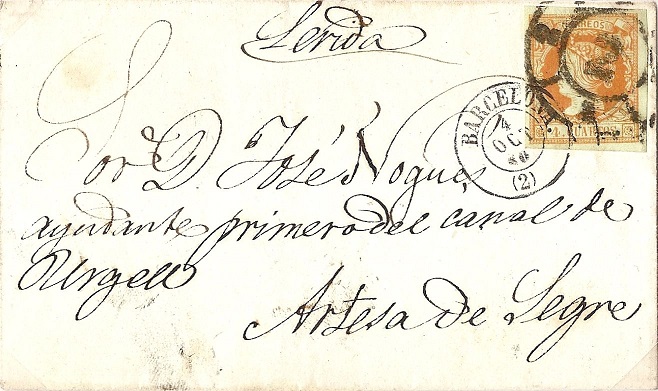 Lerida
CORREOS
4 CUARTOS
BARCELONA
4
OCT
60
(2)
2
Sor D. José Nogues
ayudante primero del canal de
Urgell
Artesa de Segre